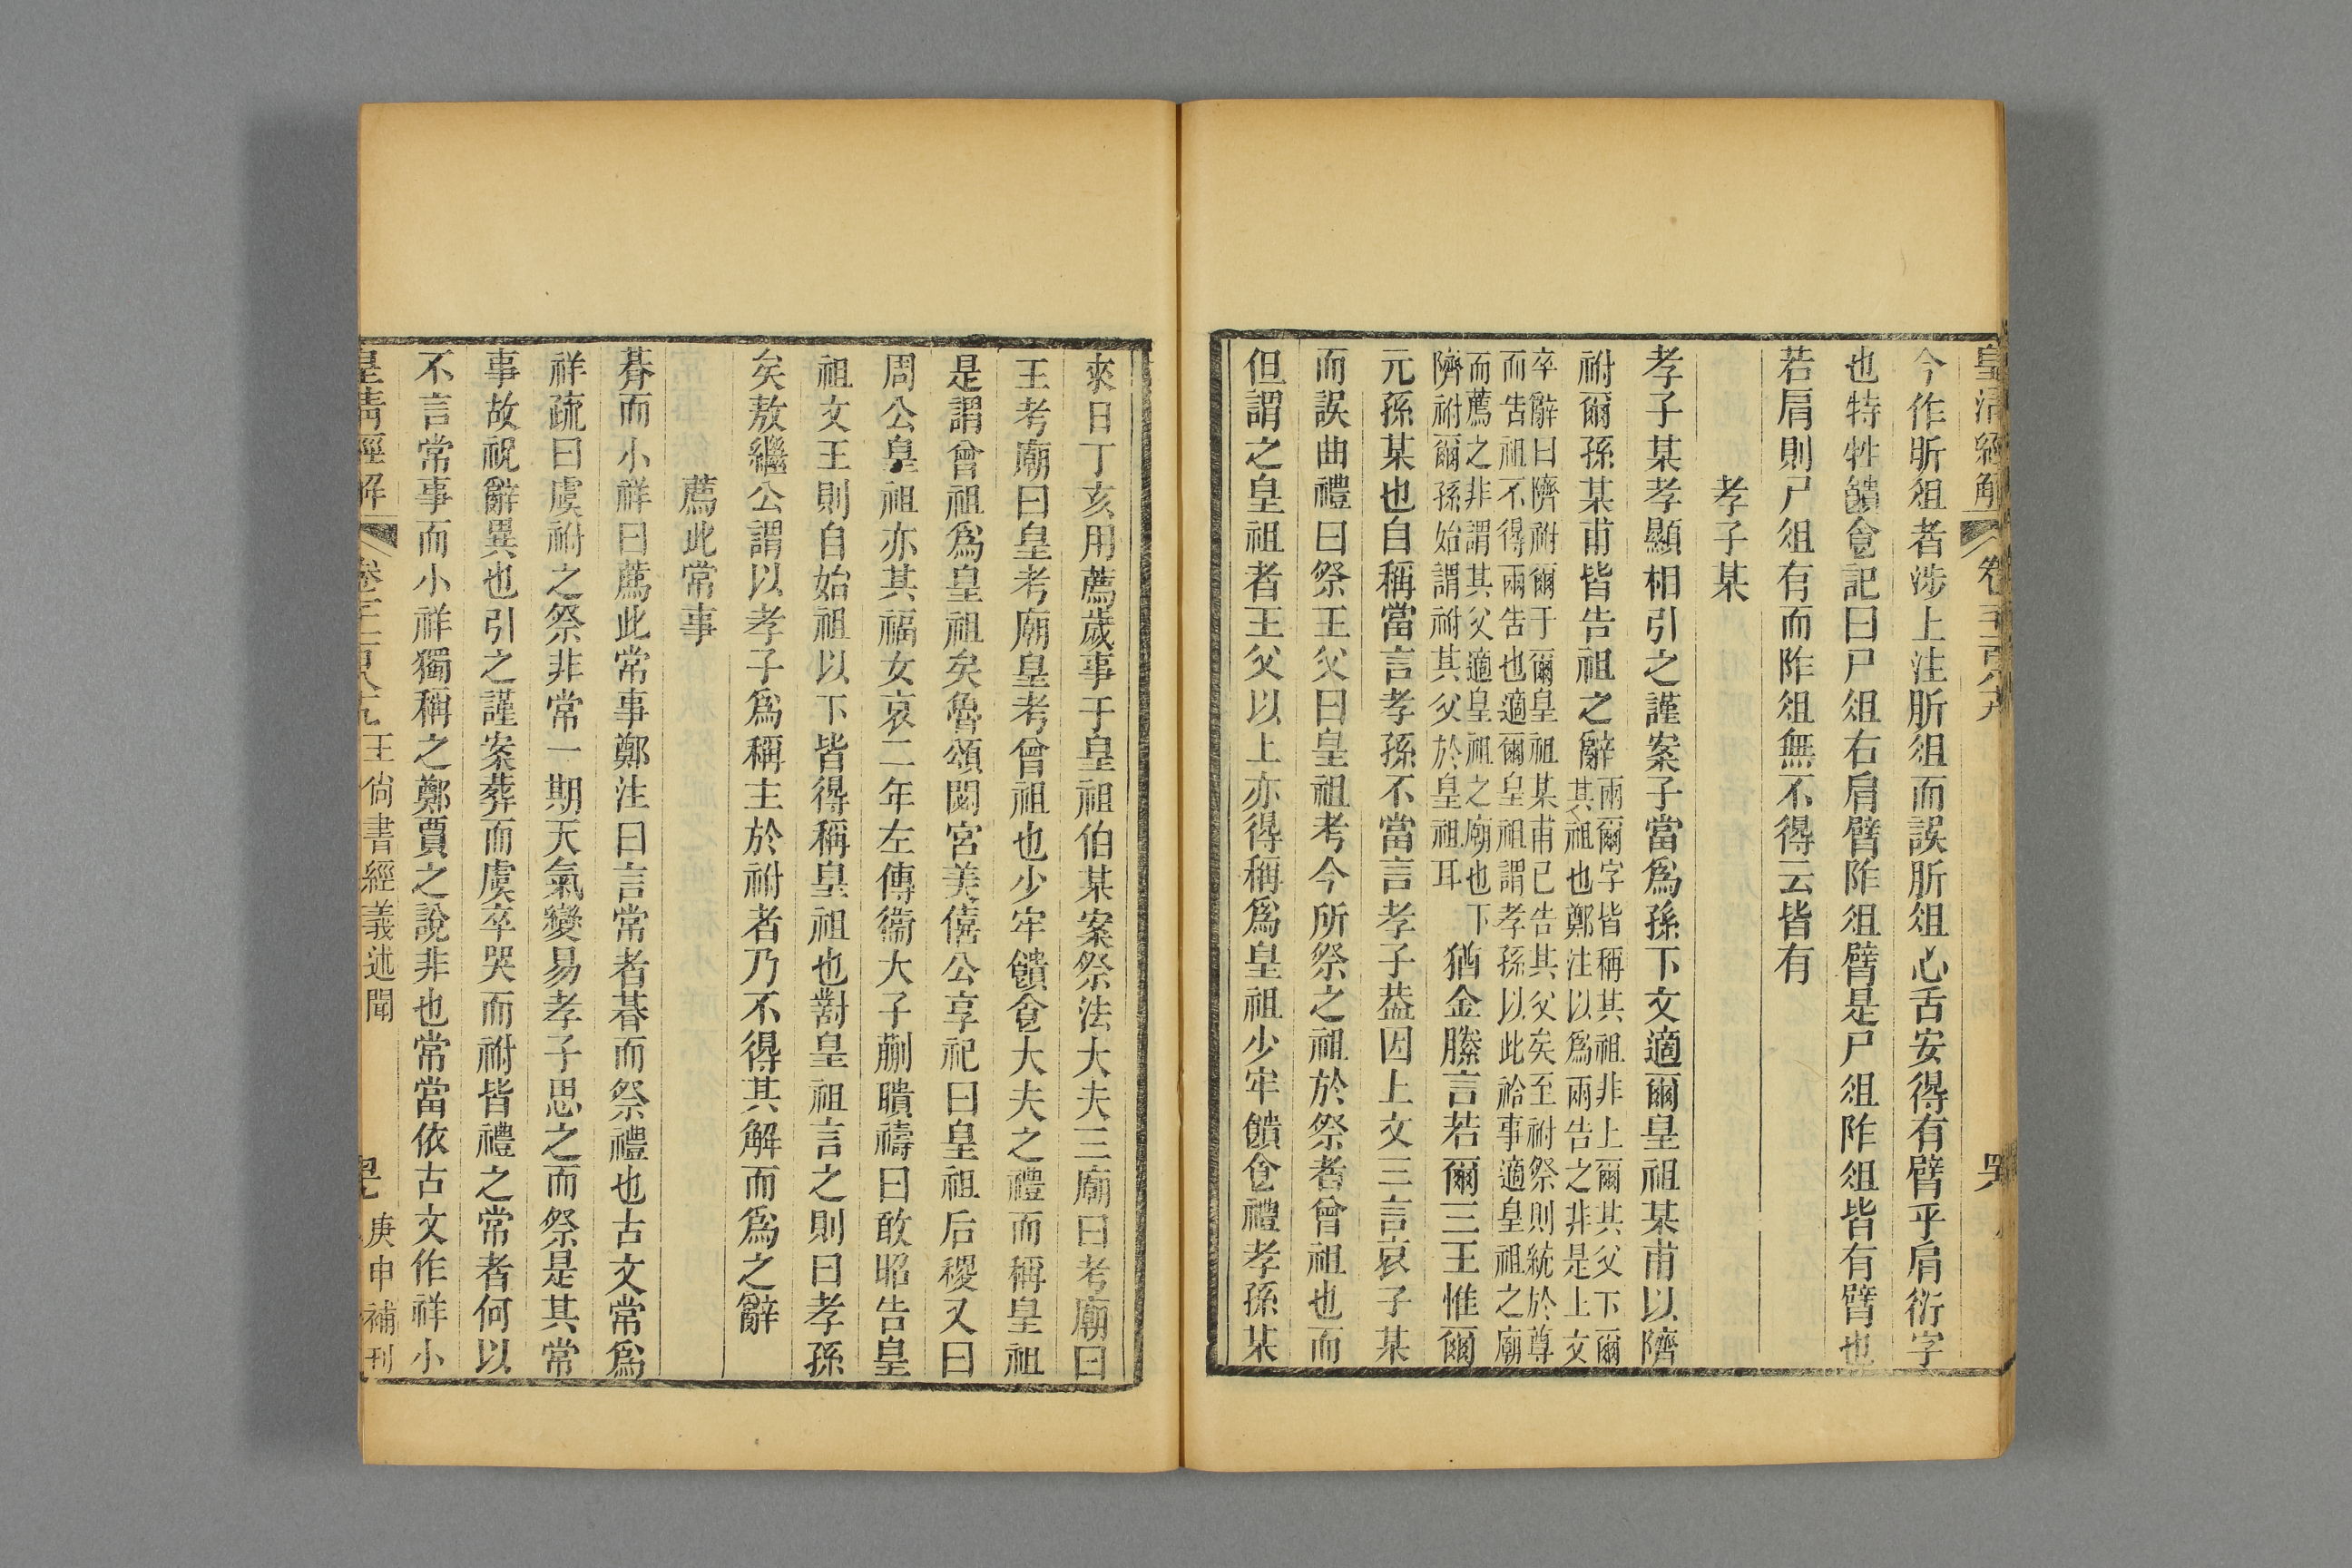 皇清經解
今作昕俎者涉上注肵俎而誤肵俎心舌安得有臂乎肩衍字
也特牲饋食記曰尸俎右肩臂阼俎臂是尸俎阼俎皆有臂也
若肩則尸俎有而阼俎無不得云皆有
孝子某
孝子某孝顯相引之謹案子當爲孫下文適爾皇祖某甫以隮
祔爾孫某甫皆告祖之辭
兩爾字皆稱其祖非上爾其父下爾
其祖也鄭注以爲兩告之非是上文
卒辭曰隮祔爾于爾皇祖某甫已告其父矣至祔祭則統於尊
而告祖不得兩告也適爾皇祖謂孝孫以此祫事適皇祖之廟
而薦之非謂其父適皇祖之廟也下
隮祔爾孫始謂祔其父於皇祖耳
猶金縢言若爾三王惟爾
元孫某也自稱當言孝孫不當言孝子葢因上文三言哀子某
而誤曲禮曰祭王父曰皇祖考今所祭之祖於祭者曾祖也而
但謂之皇祖者王父以上亦得稱爲皇祖少牢饋食禮孝孫某
來日丁亥用薦歲事于皇祖伯某案祭法大夫三廟曰考廟曰
王考廟曰皇考廟皇考曾祖也少牢饋食大夫之禮而稱皇祖
是謂曾祖爲皇祖矣魯頌閟宮美僖公享祀曰皇祖后稷又曰
周公皇祖亦其福女哀二年左傳衞大子蒯聵禱曰敢昭告皇
祖文王則自始祖以下皆得稱皇祖也對皇祖言之則曰孝孫
矣敖繼公謂以孝子爲稱主於祔者乃不得其解而爲之辭
薦此常事
朞而小祥曰薦此常事鄭注曰言常者朞而祭禮也古文常爲
祥疏曰虞祔之祭非常一期天氣變易孝子思之而祭是其常
事故祝辭異也引之謹案葬而虞卒哭而祔皆禮之常者何以
不言常事而小祥獨稱之鄭賈之說非也常當依古文作祥小
皇清經解
王尙書經義述聞
庚申補刊